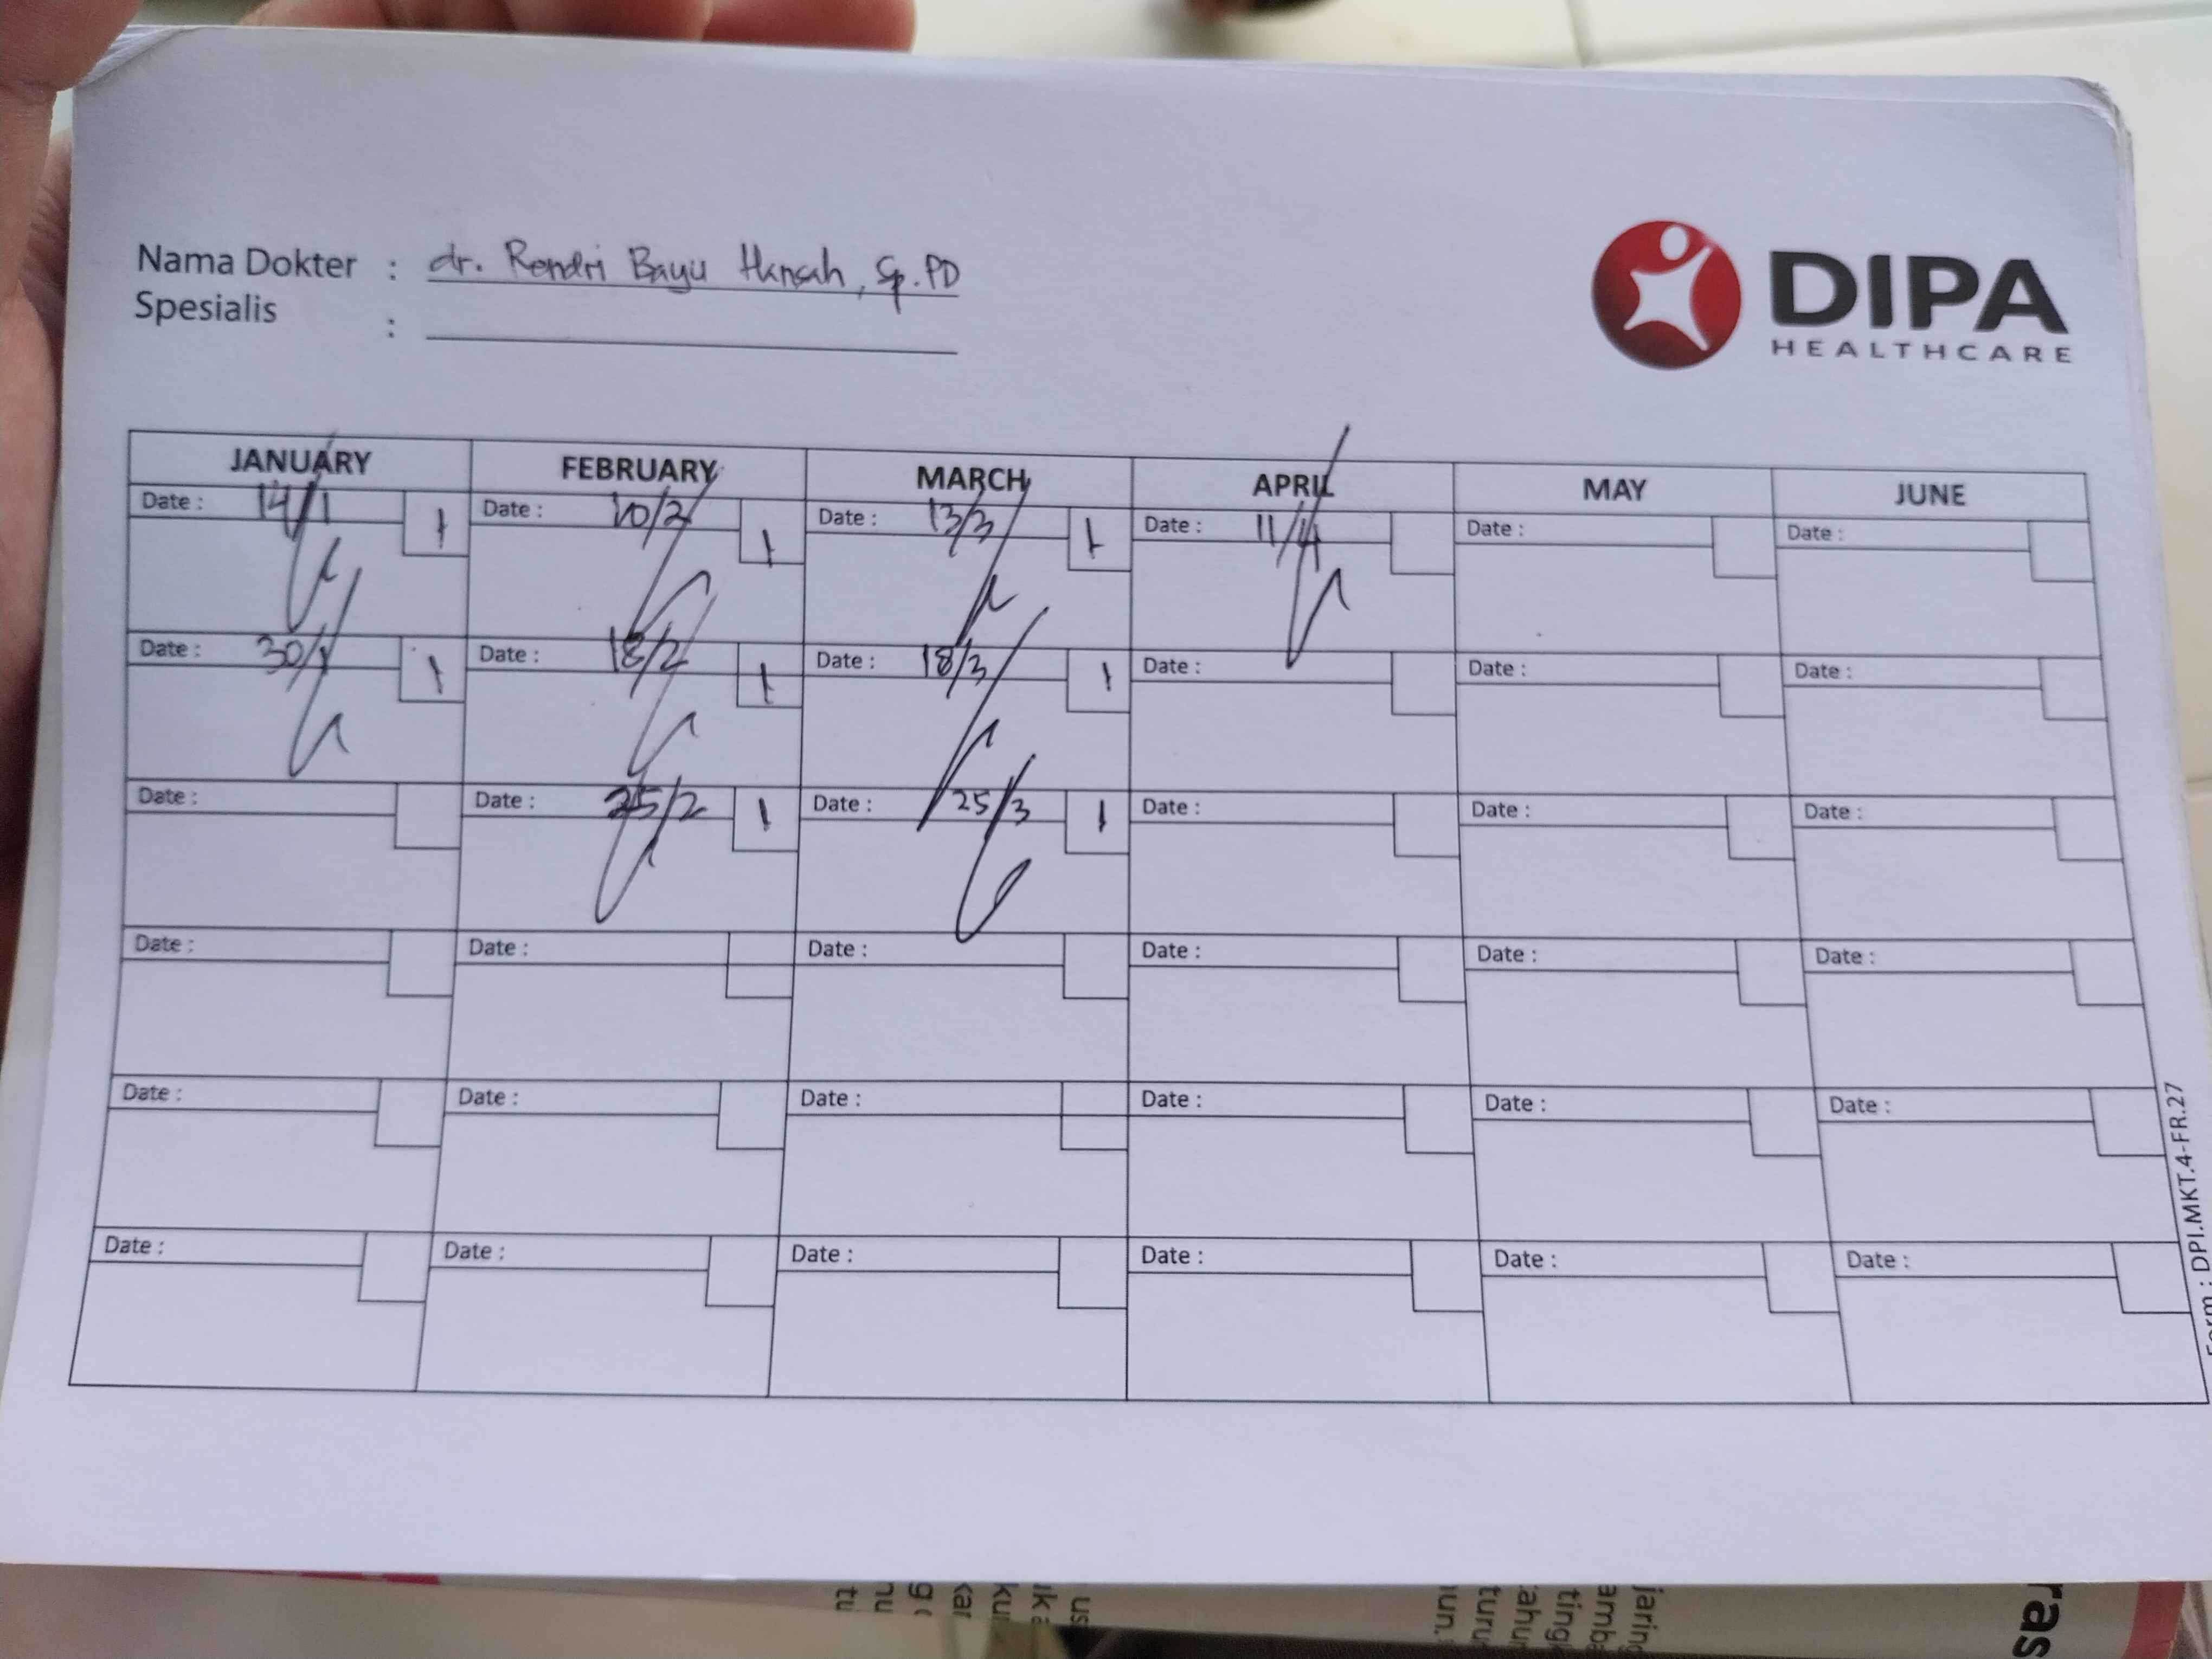 Nama Dokter : dr. Rendri Bayu Hansah, Sp.PD
Spesialis :
DIPA
HEALTHCARE
JANUARY FEBRUARY MARCH APRIL MAY JUNE
Date : 14/1 1 Date : 10/2 1 Date : 13/3 1 Date : 11/4 Date : Date :
Date : 30/1 1 Date : 18/2 1 Date : 18/3 1 Date : Date : Date :
Date : Date : 25/2 1 Date : 25/3 1 Date : Date : Date :
Date : Date : Date : Date : Date : Date :
Date : Date : Date : Date : Date : Date :
Date : Date : Date : Date : Date : Date :
Form : DPI.MKT.4-FR.27
ras